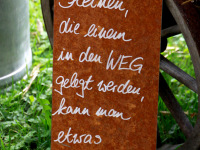 Steinen,
die einem
in den WEG
gelegt werden,
kann man
etwas